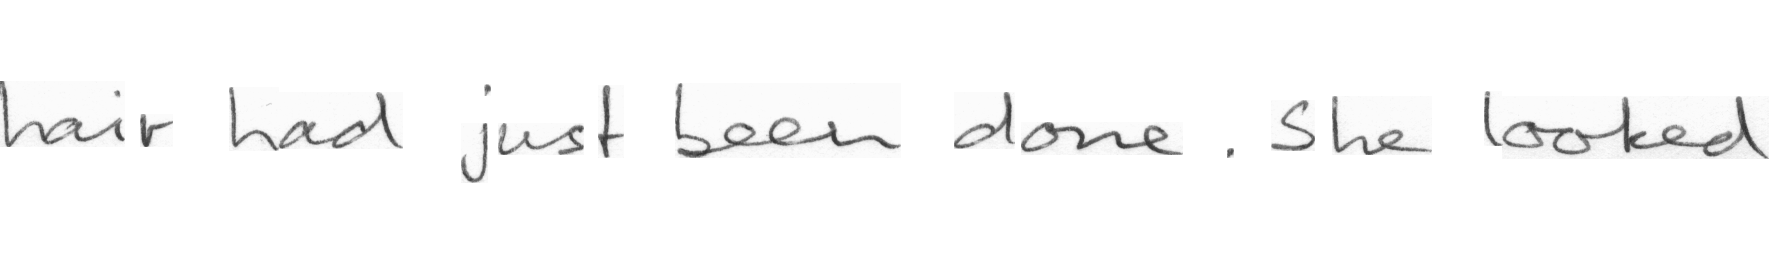 hair had just been done. She looked